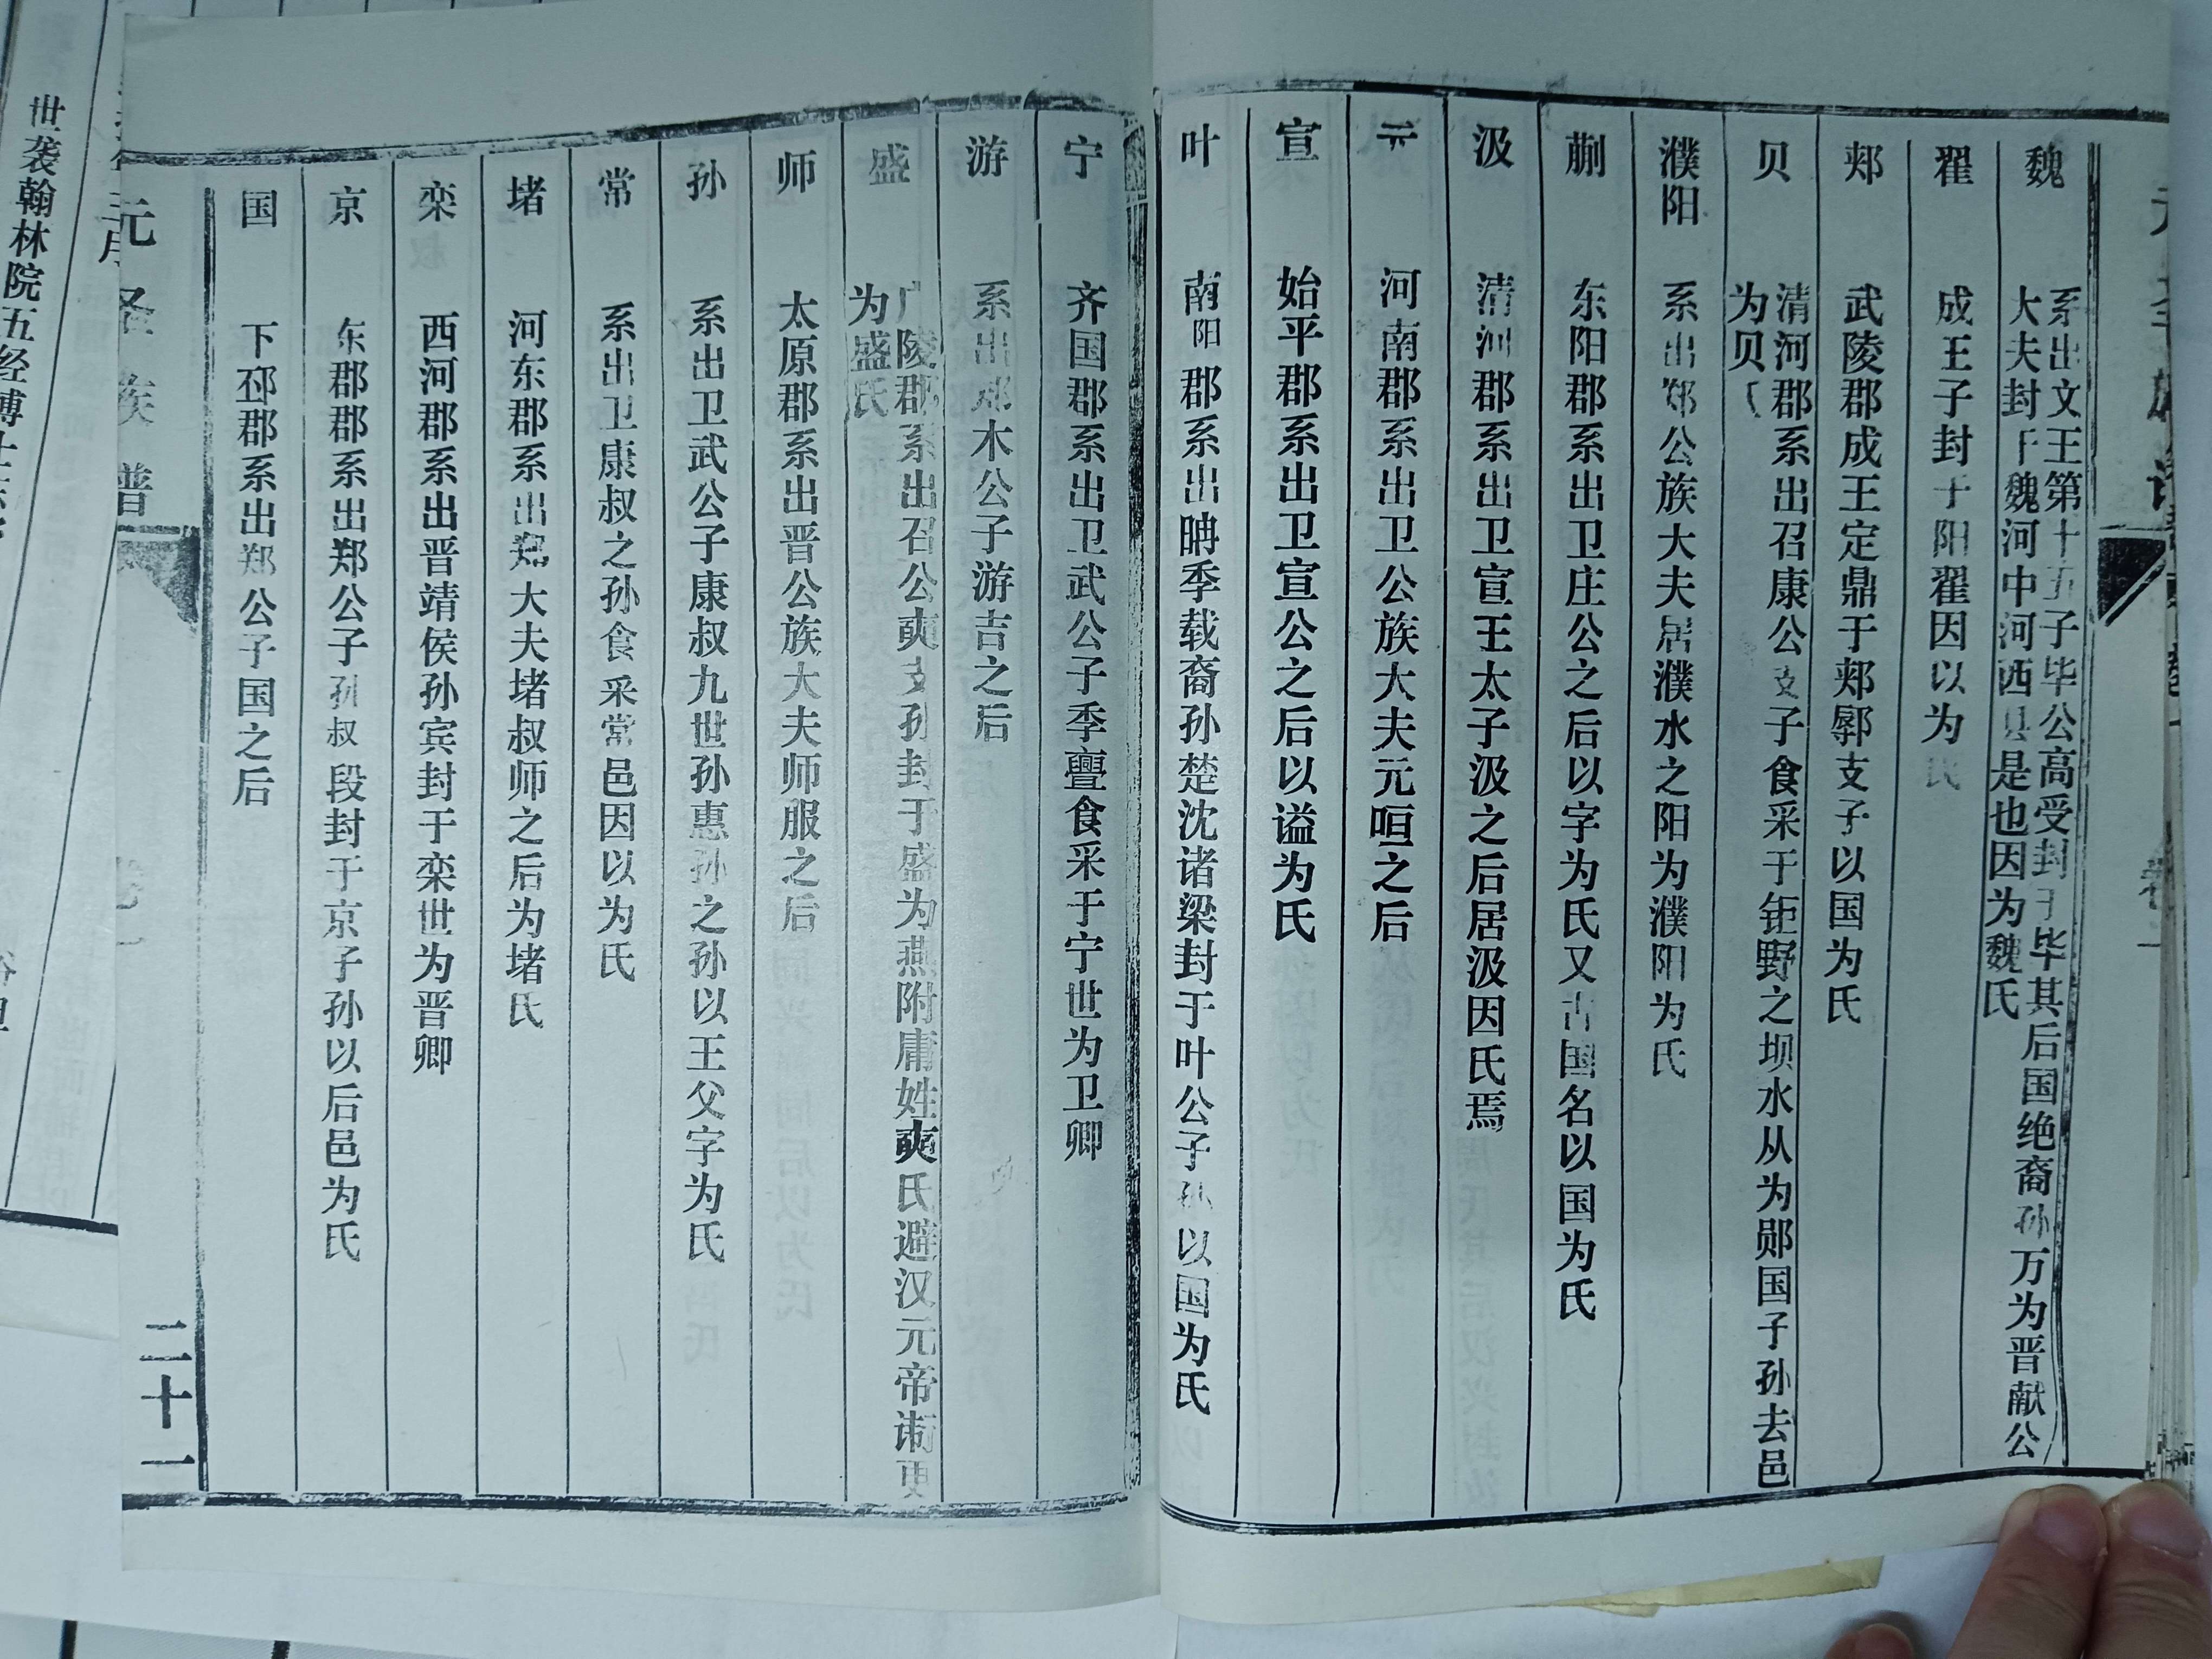 魏 系出文王第十五子毕公高受封于毕其后国绝裔孙万为晋献公
大夫封于魏河中河西县是也因为魏氏
翟 成王子封于阳翟因以为氏
郏 武陵郡成王定鼎于郏鄏支子以国为氏
贝 清河郡系出召康公支子食采于钜野之坝水从为郧国子孙去邑
为贝
濮阳 系出郑公族大夫居濮水之阳为濮阳为氏
蒯 东阳郡系出卫庄公之后以字为氏又古国名以国为氏
汲 清河郡系出卫宣王太子汲之后居汲因氏焉
元 河南郡系出卫公族大夫元咺之后
宣 始平郡系出卫宣公之后以谥为氏
叶 南阳郡系出聃季载裔孙楚沈诸梁封于叶公子孙以国为氏
宁 齐国郡系出卫武公子季亹食采于宁世为卫卿
游 系出郑木公子游吉之后
盛 广陵郡系出召公奭支孙封于盛为燕附庸姓奭氏避汉元帝讳更
为盛氏
师 太原郡系出晋公族大夫师服之后
孙 系出卫武公子康叔九世孙惠孙之孙以王父字为氏
常 系出卫康叔之孙食采常邑因以为氏
堵 河东郡系出郑大夫堵叔师之后为堵氏
栾 西河郡系出晋靖侯孙宾封于栾世为晋卿
京 东郡郡系出郑公子孙叔段封于京子孙以后邑为氏
国 下邳郡系出郑公子国之后
元圣族谱
卷一
二十一
世袭翰林院五经博士